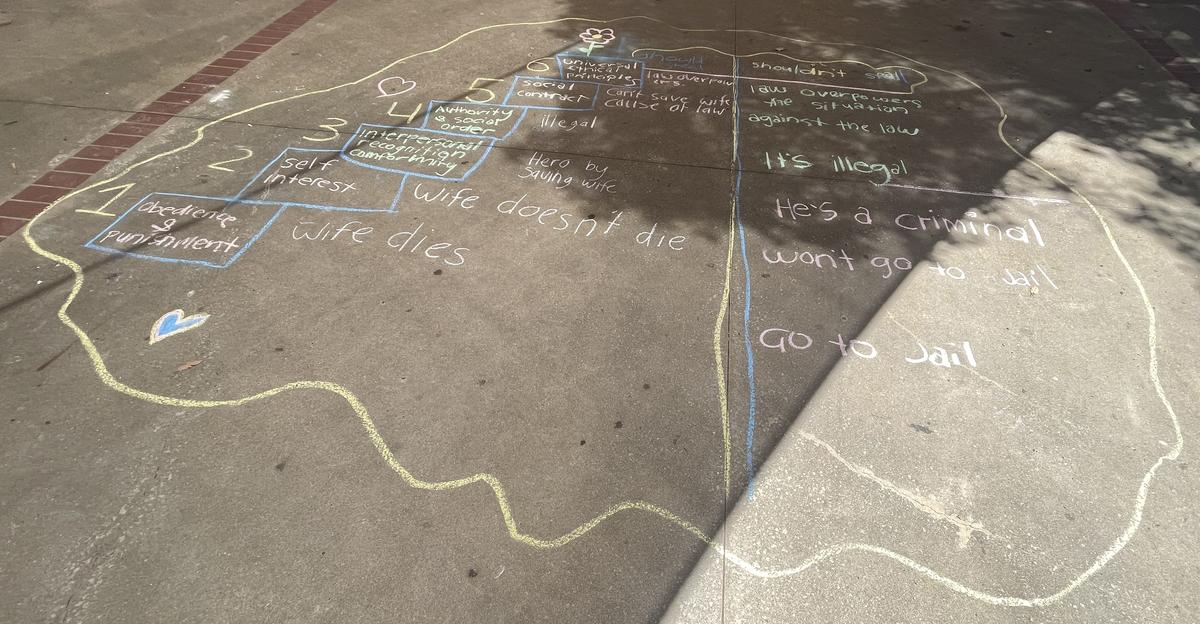 should
shouldn't steal
6
universal
ethical
principles
law overpow
ers.
law overpowers
the situation
5
social
contract
Can't save wife
cause of law
against the law
4
Authority
& social
order
illegal
It's illegal
3
Interpersonal
recognition
comforming
Hero by
Saving wife
He's a criminal
2
self
interest
wife doesn't die
won't go to Jail
1
Obedience
&
punishment
wife dies
Go to Jail